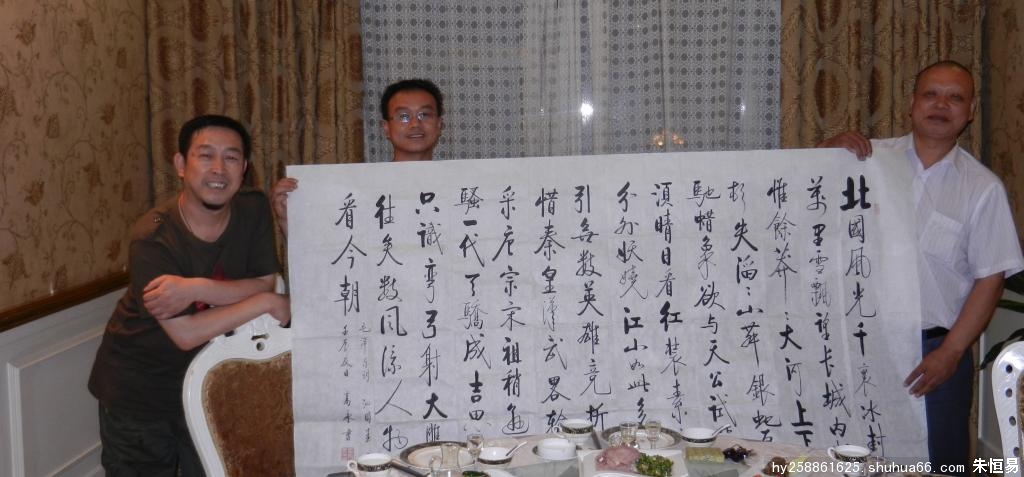 北國風光千裏冰封
萬里雪飄望长城内
惟餘莽ミ大河上下
顿失滔ミ山舞銀蛇原
馳蜡象欲与天公試
須晴日看红装素
分外妖娆江山如此多
引无数英雄竞折
惜秦皇漢武畧輸
采唐宗宋祖稍逊
騷一代天驕成吉思
只識弯弓射大雕
往矣数风流人物
看今朝
毛泽东词 沁园春
壬辰夏日
hy258861625.shuhua66.com 朱恒易